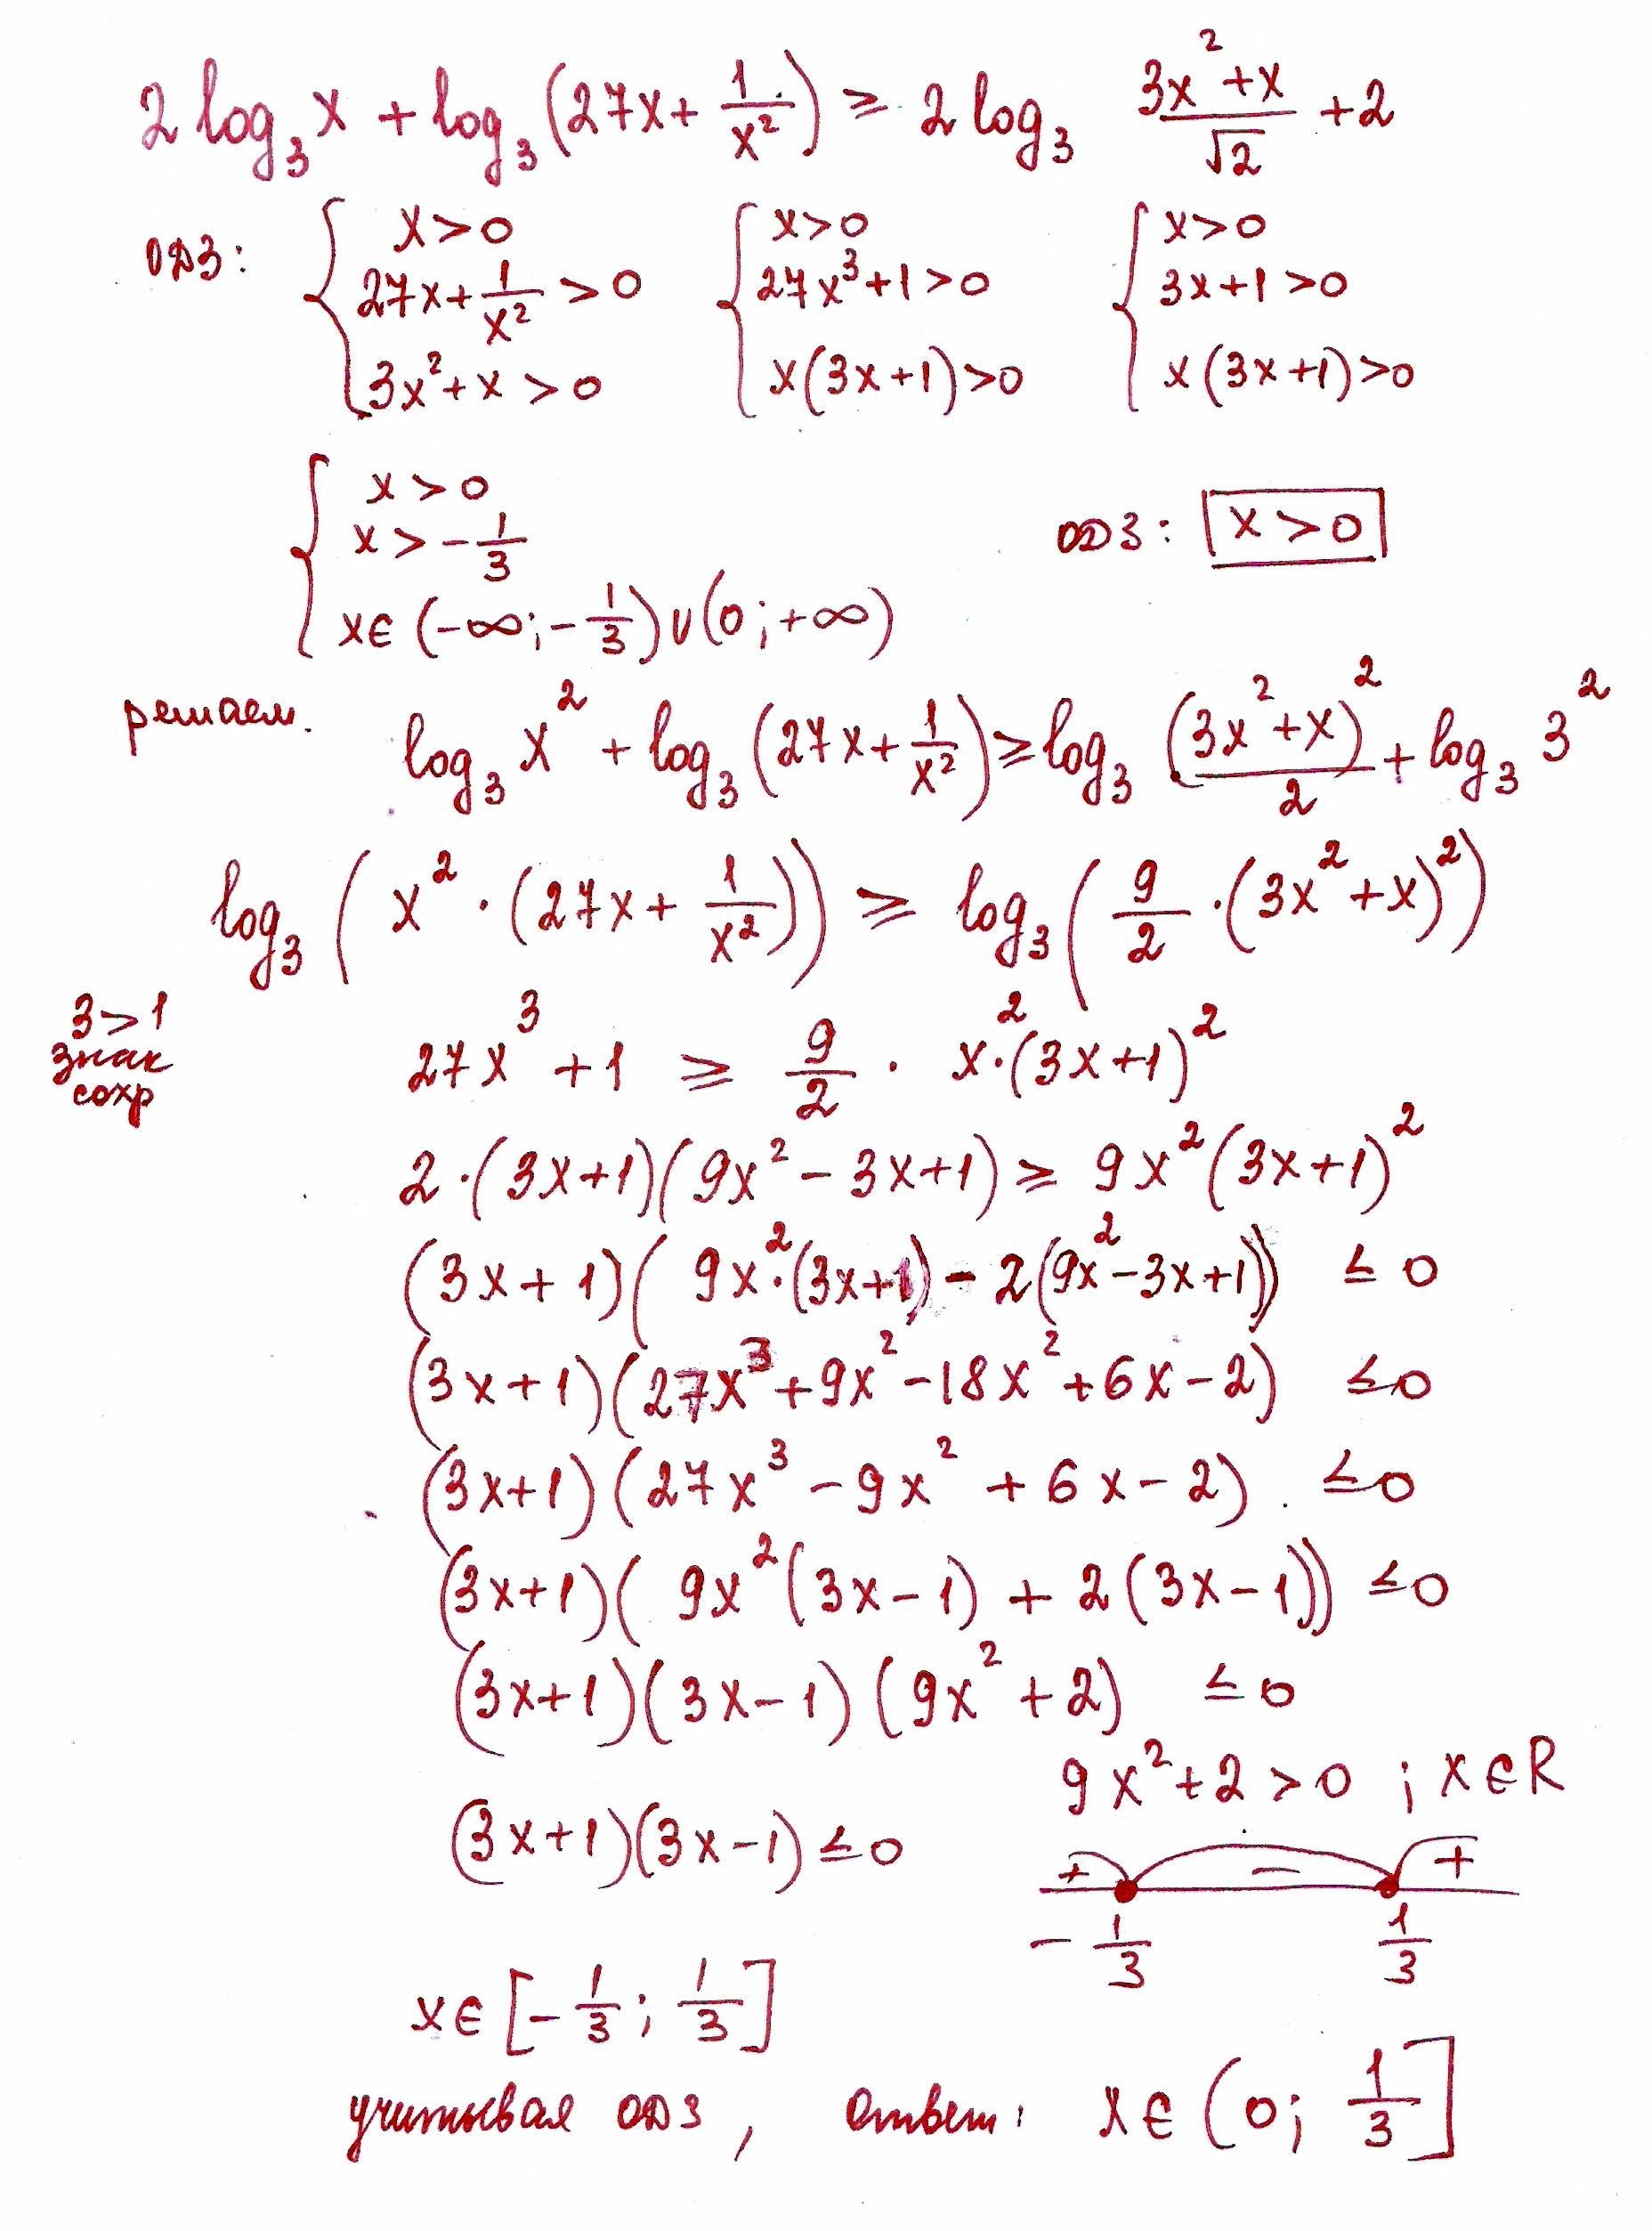 2 log₃ x + log₃ (27x + 1/x²) ≥ 2 log₃ (3x² + x)/√2 + 2
ОДЗ: { x > 0 { x > 0 { x > 0
27x + 1/x² > 0 27x³ + 1 > 0 3x + 1 > 0
3x² + x > 0 x(3x + 1) > 0 x(3x + 1) > 0
{ x > 0
x > -1/3 ОДЗ: x > 0
x ∈ (-∞; -1/3) ∪ (0; +∞)
решаем. log₃ x² + log₃ (27x + 1/x²) ≥ log₃ (3x² + x)²/2 + log₃ 3²
log₃ (x² · (27x + 1/x²)) ≥ log₃ (9/2 · (3x² + x)²)
3 > 1
знак
сохр
27x³ + 1 ≥ 9/2 · x² · (3x + 1)²
2 · (3x + 1)(9x² - 3x + 1) ≥ 9x² (3x + 1)²
(3x + 1)(9x² · (3x + 1) - 2(9x² - 3x + 1)) ≤ 0
(3x + 1)(27x³ + 9x² - 18x² + 6x - 2) ≤ 0
(3x + 1)(27x³ - 9x² + 6x - 2) ≤ 0
(3x + 1)(9x² (3x - 1) + 2(3x - 1)) ≤ 0
(3x + 1)(3x - 1)(9x² + 2) ≤ 0
9x² + 2 > 0 ; x ∈ R
(3x + 1)(3x - 1) ≤ 0
+ - +
-1/3 1/3
x ∈ [-1/3; 1/3]
учитывая ОДЗ, ответ: x ∈ (0; 1/3]